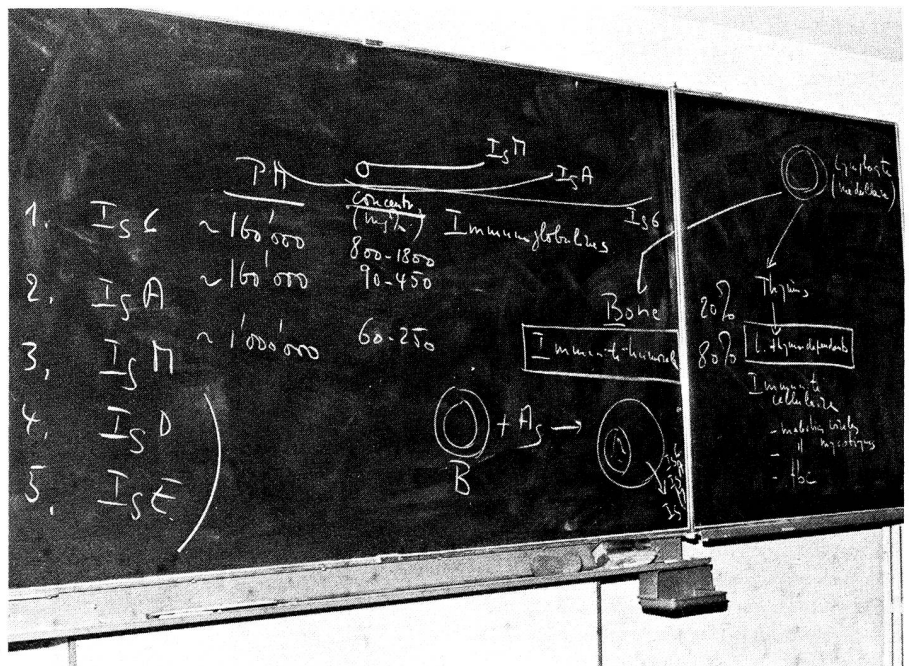 PM
concentr.
(mg%)
IgM
IgA
IgG
Immunglobulines
1. IgG ~160'000 800-1800
2. IgA ~160'000 90-450
3. IgM ~1'000'000 60-250
4. IgD
5. IgE
B + Ag →
Bone
Immunité humorale
Lymphocyte
(médullaire)
Thymus
20%
80%
L. thymodépendants
Immunité
cellulaire
- maladies virales
- " mycotiques
- tbc